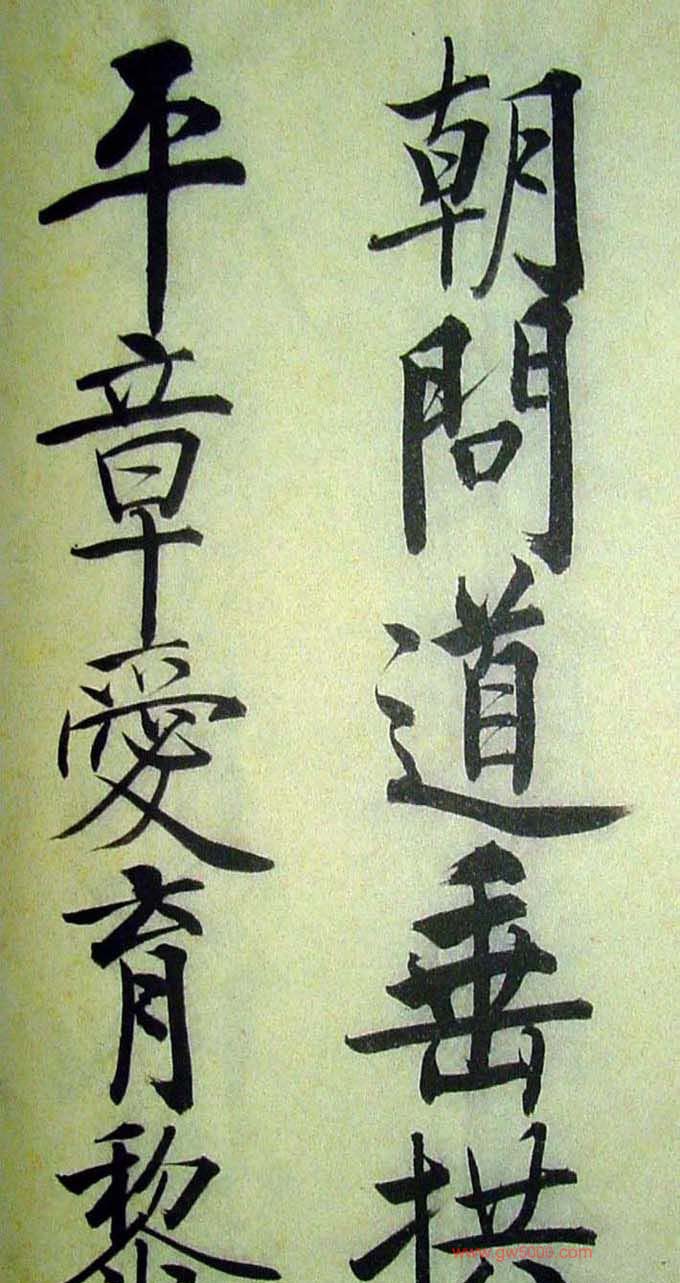 朝問道垂拱
平章愛育黎
www.gw5009.com